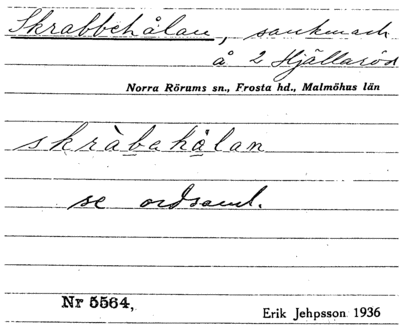 Skrabbehålan, sankmark
å 2 Hjällaröd
Norra Rörums sn., Frosta hd., Malmöhus län
skràbahålan
se ordsaml.
Nr 5564,
Erik Jehpsson 1936